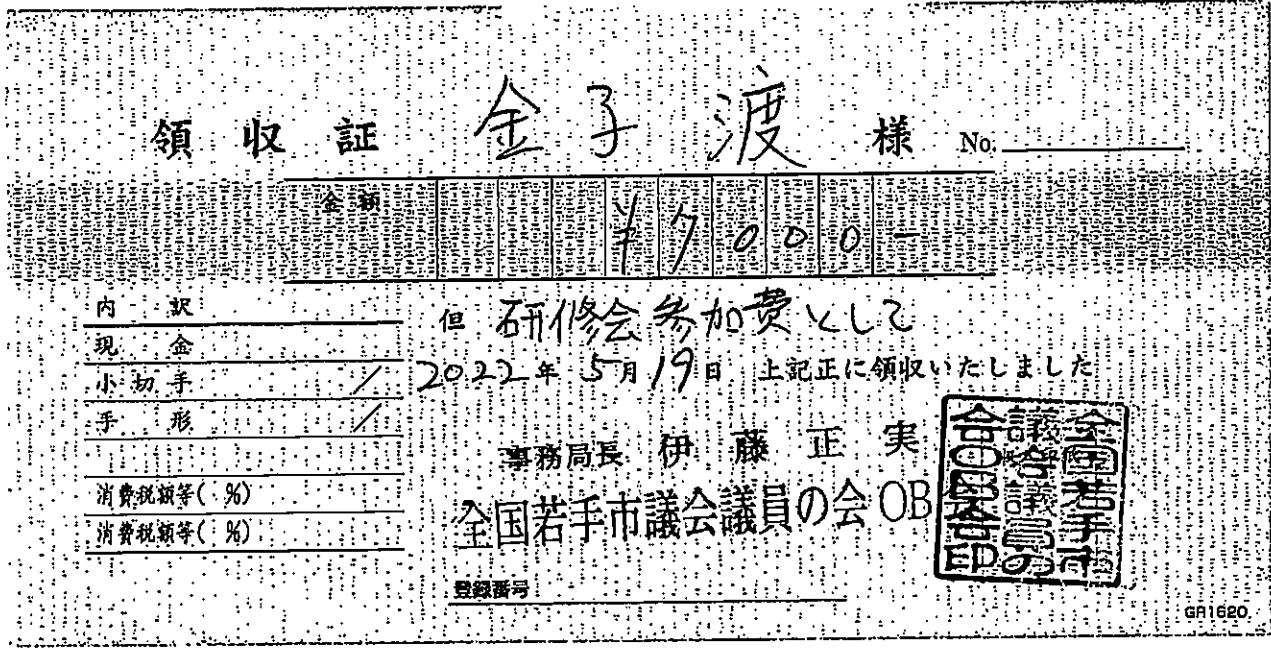 領収証 金子渡 様 No.
金額 ¥7000-
内訳
現金
小切手 /
手形 /
消費税額等( %)
消費税額等( %)
但 研修会参加費として
2022年 5月 19日 上記正に領収いたしました
事務局長 伊藤正実
全国若手市議会議員の会OB
全国若手市
議会議員の
会OB
登録番号
GR1620